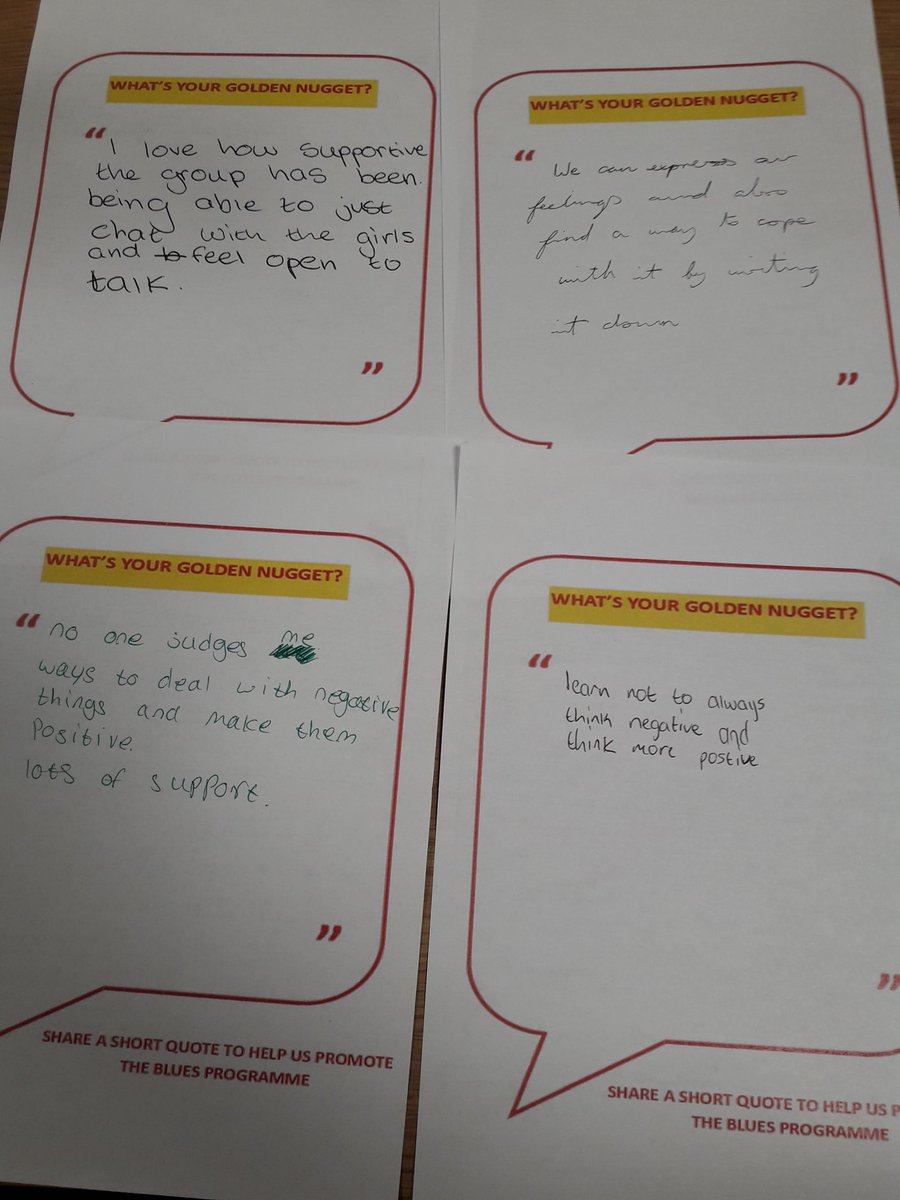 WHAT'S YOUR GOLDEN NUGGET?
“ I love how supportive
the group has been.
being able to just
chat with the girls
and to feel open to
talk.
”
WHAT'S YOUR GOLDEN NUGGET?
“ We can express our
feelings and also
find a way to cope
with it by writing
it down
”
WHAT'S YOUR GOLDEN NUGGET?
“ no one judges me
ways to deal with negative
things and make them
positive.
lots of support.
”
SHARE A SHORT QUOTE TO HELP US PROMOTE
THE BLUES PROGRAMME
WHAT'S YOUR GOLDEN NUGGET?
“ learn not to always
think negative and
think more postive
”
SHARE A SHORT QUOTE TO HELP US P
THE BLUES PROGRAMME